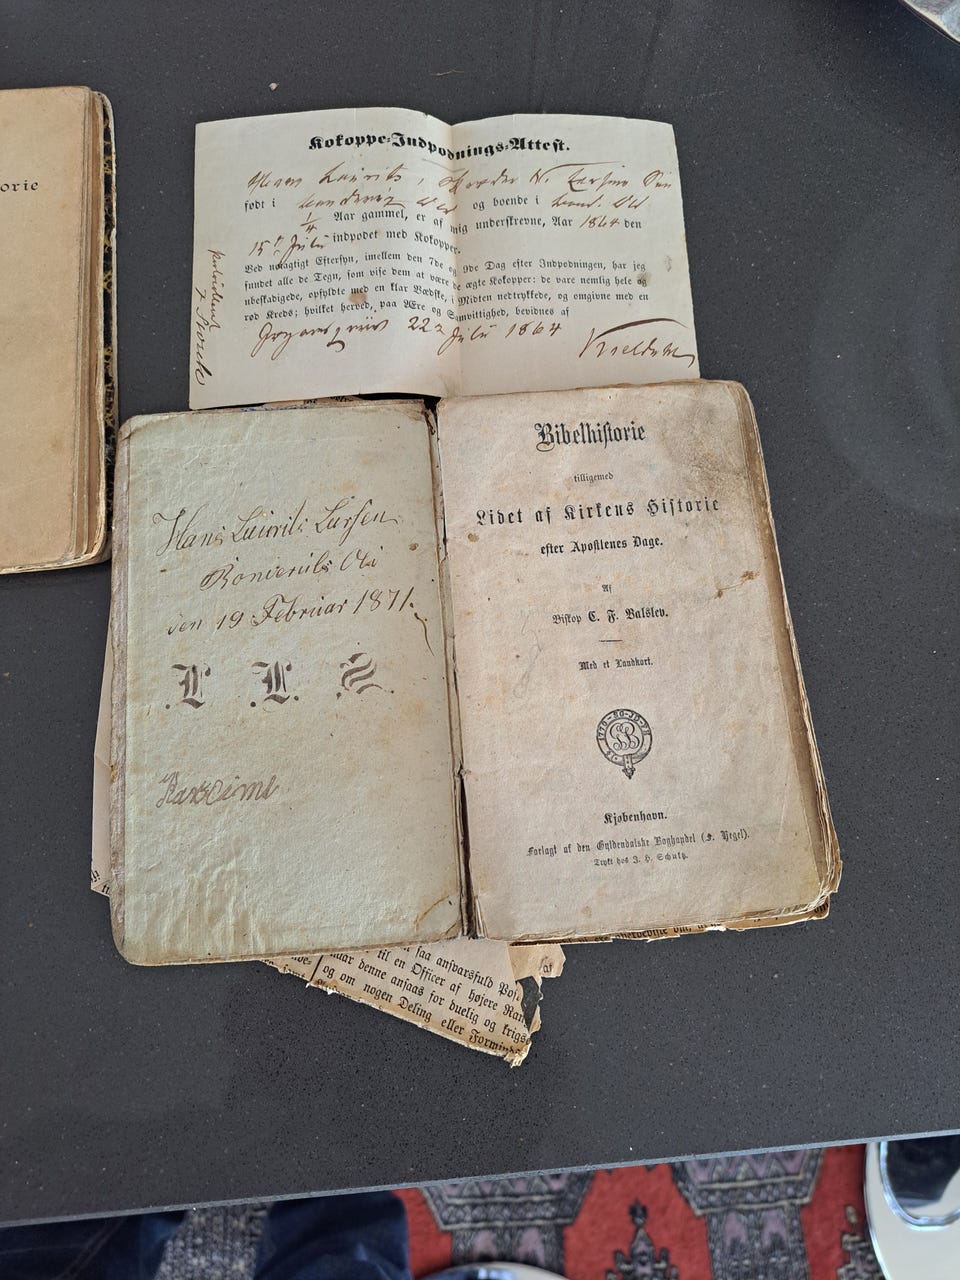 orie
Kokoppe-Indpodnings-Attest.
Hans Laurits,
født i og boende i
1/4 Aar gammel, er af mig underskrevne, Aar 1864 den
15 Juli indpodet med Kokopper.
Ved nøiagtigt Eftersyn, imellem den 7de og 9de Dag efter Indpodningen, har jeg
fundet alle de Tegn, som vise dem at være de ægte Kokopper: de vare nemlig hele og
ubeskadigede, opfyldte med en klar Vædske, i Midten nedtrykkede, og omgivne med en
rød Kreds; hvilket herved, paa Ære og Samvittighed, bevidnes af
22 Juli 1864
Hans Laurits Larsen
den 19 Februar 1871.
L. L. S.
Bibelhistorie
tilligemed
Lidet af Kirkens Historie
efter Apostlenes Dage.
Af
Biskop C. F. Balslev.
Med et Landkort.
Kjøbenhavn.
Forlagt af den Gyldendalske Boghandel (F. Hegel).
Trykt hos J. H. Schultz.
saa ansvarsfuld Pos
til en Officer af højere Ran
denne ansaas for duelig og krigs
og om nogen Deling eller Formind